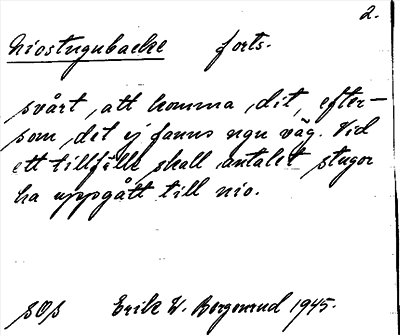 2.
Niostugubacke forts.
svårt, att komma dit, efter-
som det ej fanns ngn väg. Vid
ett tillfälle skall antalet stugor
ha uppgått till nio.
Erik W. 1945.